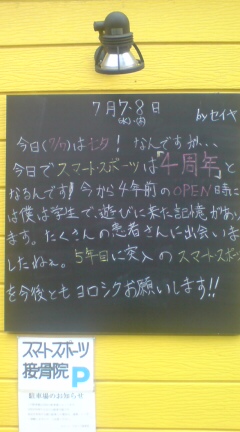 7月7.8日
(火)(水)
byセイヤ
今日(7/7)は七夕! なんですが...
今日でスマートスポーツは「4周年」と
なるんです! 今から4年前のOPEN日時に
は僕は学生で、遊びに来た記憶があり
ます。たくさんの患者さんに出会いま
したねぇ。5年目に突入のスマートスポーツ
を今後ともヨロシクお願いします!!
スマートスポーツ
接骨院 P
駐車場のお知らせ